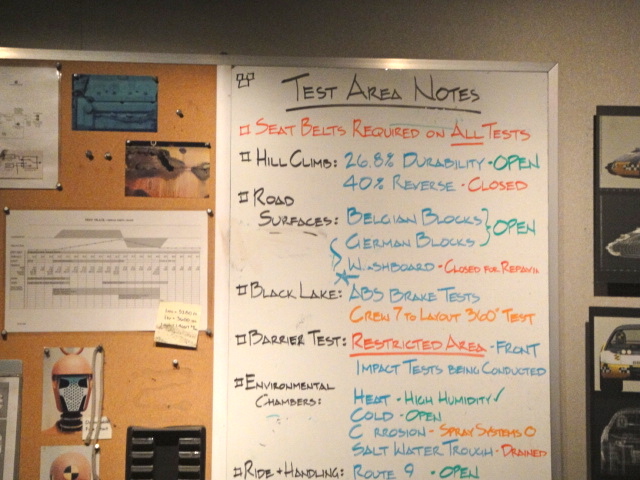 Test Area Notes
Seat Belts Required on All Tests
Hill Climb: 26.8% Durability - Open
40% Reverse - Closed
Road
Surfaces: Belgian Blocks } Open
German Blocks
Washboard - Closed for Repavin
Black Lake: ABS Brake Tests
Crew 7 to Layout 360° Test
Barrier Test: Restricted Area - Front
Impact Tests Being Conducted
Environmental
Chambers: Heat - High Humidity ✓
Cold - Open
C rrosion - Spray Systems O
Salt Water Trough - Drained
Ride + Handling: Route 9 - Open